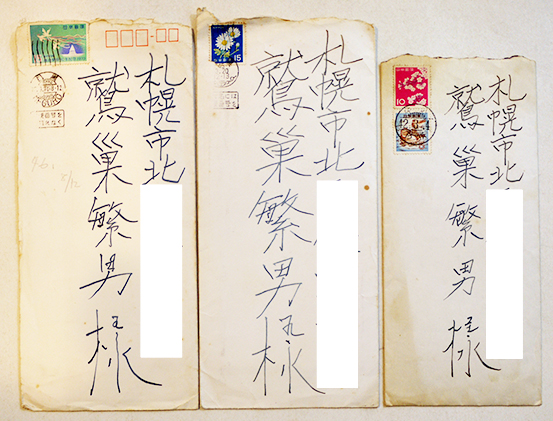 札幌市北
鷲巣繁男様
15
札幌市北
鷲巣繁男様
10
札幌市北
鷲巣繁男様